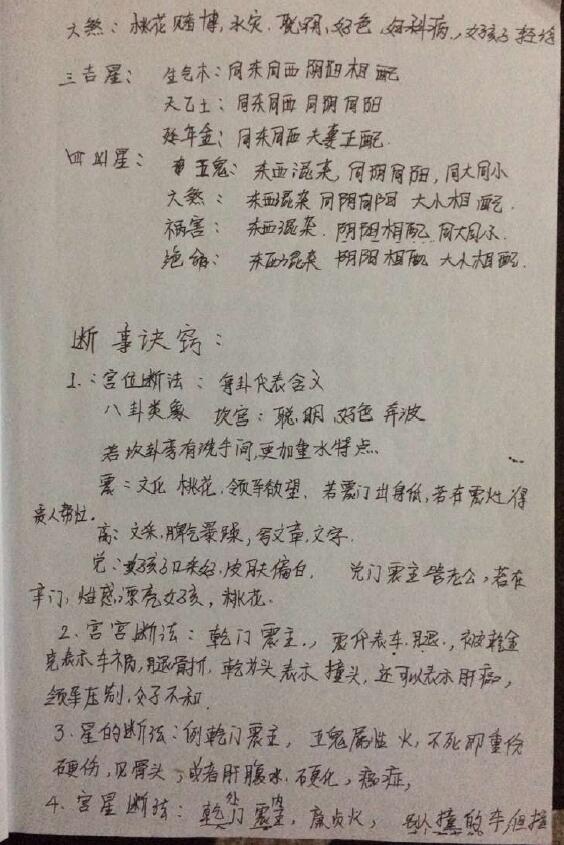 六煞：桃花赌博，水灾，聪明，好色，妇科病，女孩子轻给
三吉星：生气木：同东同西 阴阳相配
天乙土：同东同西 同阴同阳
延年金：同东同西 夫妻正配
四凶星：五鬼：东西混杂，同阴同阳，同大同小
六煞：东西混杂 同阴同阳 大小相配．
祸害：东西混杂．阴阳相配 同大同小．
绝命：东西混杂 阴阳相配 大小相配．
断事诀窍：
1.：宫位断法：每卦代表含义
八卦类象 坎宫：聪明，好色 奔波
若坎卦旁有洗手间，更加重水特点．
震：文化 桃花，领导欲望，若震门出身低，若在震灶得
贵人帮灶．
离：文采，脾气暴躁，写文章，文字．
兑：女孩子口采好，皮肤偏白， 兑门震主管老公，若在
辛门，性感漂亮女孩，桃花．
2．宫宫断法：乾门震主，震代表车、腿，被乾金
克表示车祸，腿骨折，乾为头表示撞头，还可以表示肝病，
领导压制，父子不和．
3．星的断法：例乾门震主，五鬼属性火，不死即重伤
硬伤，见骨头，或者肝腹水，硬化，癌症，
4．宫星断法：乾外门震内主，廉贞火， 别人撞的车，但撞